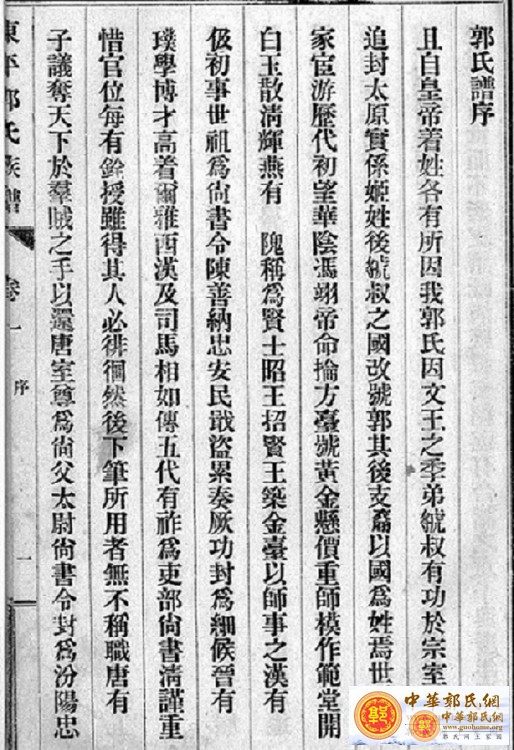 郭氏譜序
且自皇帝着姓各有所因我郭氏因文王之季弟虢叔有功於宗室
追封太原實係姬姓後虢叔之國改號郭其後支篇以國為姓焉世
家宦游歷代初望華陰馮翊帝命掄方臺號黃金懸價重師模作範堂開
白玉散淸輝燕有 隗稱為賢士昭王招賢王築金臺以師事之漢有
伋初事世祖為尙書令陳善納忠安民戢盜累奏厥功封為細候晉有
璞學博才高着爾雅西漢及司馬相如傳五代有祚為吏部尙書淸謹重
惜官位每有銓授雖得其人必徘徊然後下筆所用者無不稱職唐有
子議奪天下於羣賊之手以還唐室尊為尙父太尉尙書令封為汾陽忠
東平郭氏族譜 卷一 序 一
中華郭氏網
www.guohome.org